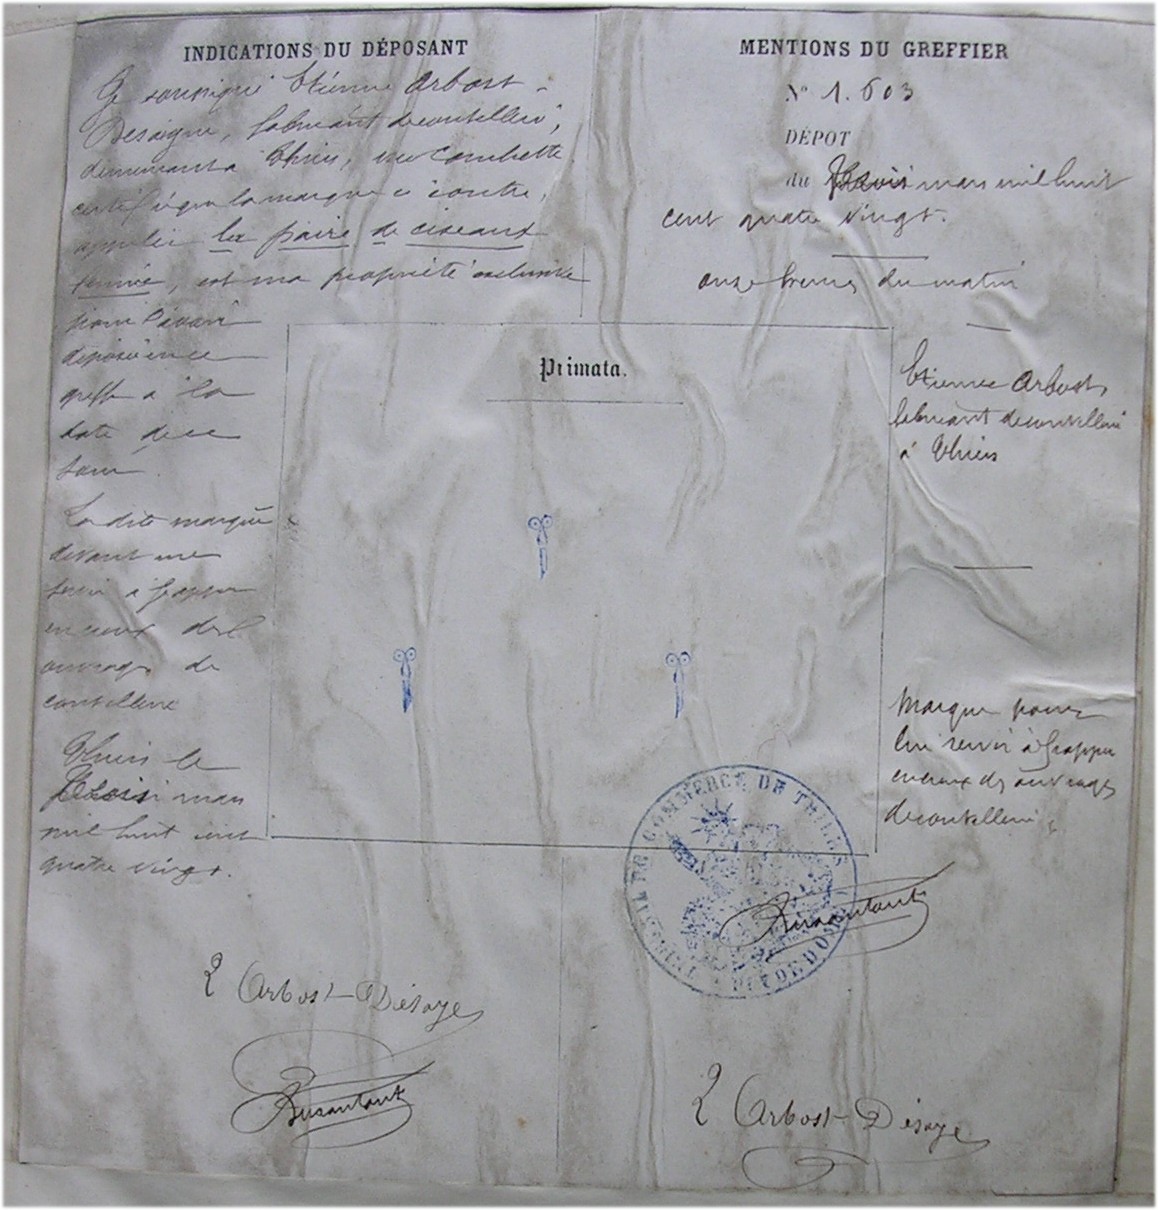 INDICATIONS DU DÉPOSANT
Je soussigné Etienne Arbost-
Desaigne, fabricant de coutellerie,
demeurant à Thiers, rue Combette
certifie que la marque ci contre,
appelée la paire de ciseaux
fermée, est ma propriété exclusive
pour l'avoir
déposée en ce
greffe à la
date de ce
jour.
La dite marque
devant me
servir à frapper
en creux des
ouvrages de
coutellerie
Thiers le
trois mars
mil huit cent
quatre vingt.
E Arbost-Désaye
MENTIONS DU GREFFIER
N° 1.603
DÉPOT
du trois mars mil huit
cent quatre vingt.
onze heures du matin
Primata.
Etienne Arbost,
fabricant de coutellerie
à Thiers
Marque pour
lui servir à frapper
en creux des ouvrages
de coutellerie
TRIBUNAL DE COMMERCE DE THIERS
PUY DE DOME
E Arbost-Désaye